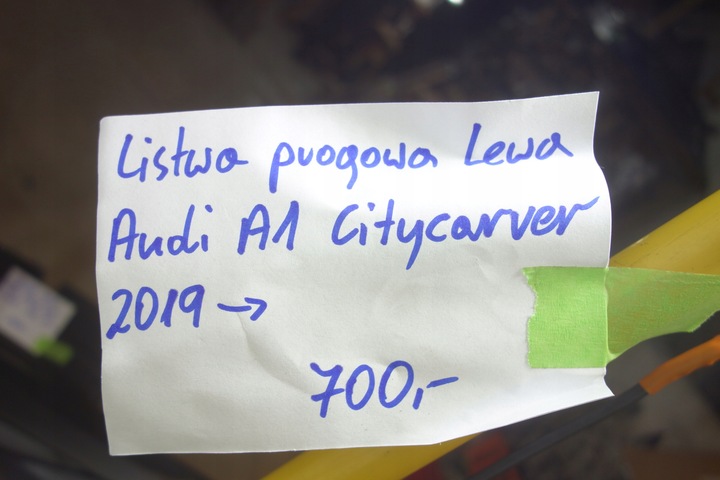 Listwa progowa Lewa
Audi A1 Citycarver
2019 →
700,-